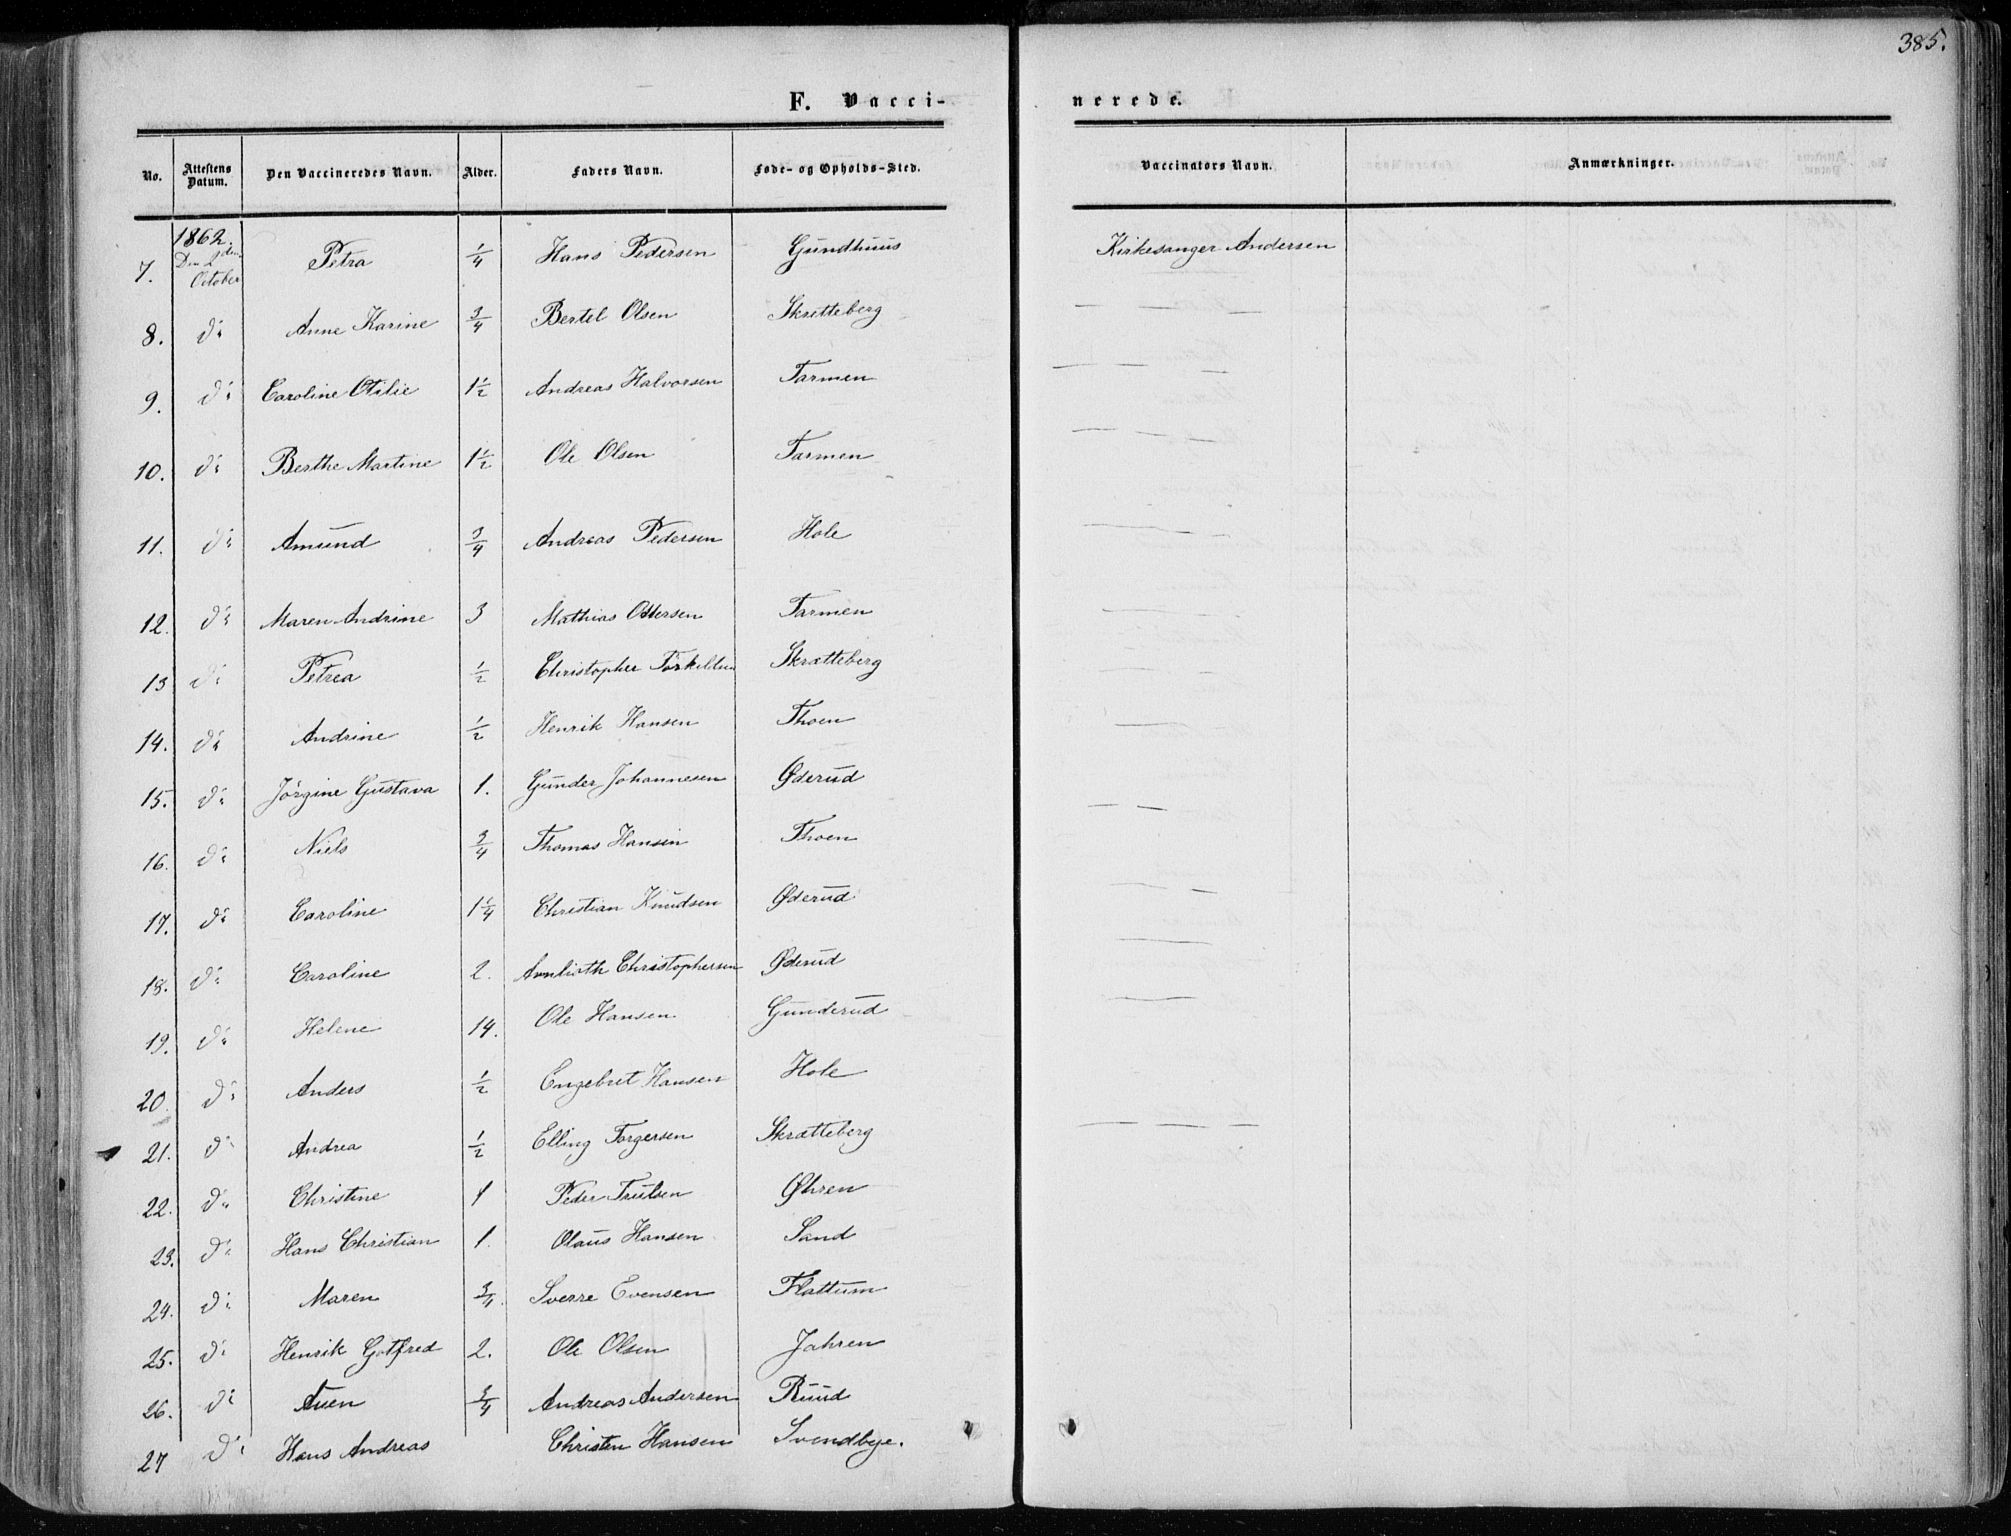 385.
F. Vacci-
nerede.
No. | Attestens Datum. | Den Vaccineredes Navn. | Alder. | Faders Navn. | Føde- og Opholds-Sted. | Vaccinators Navn. | Anmærkninger.
7. | 1862. Den 2den October | Petra | 1/4 | Hans Pedersen | Gundhuus | Kirkesanger Andersen
8. | d° | Anne Karine | 3/4 | Bertel Olsen | Skrætteberg | — — —
9. | d° | Caroline Otilie | 1 1/2 | Andreas Halvorsen | Tarmen | — — —
10. | d° | Berthe Martine | 1 1/2 | Ole Olsen | Tarmen | — — —
11. | d° | Amund | 3/4 | Andreas Pedersen | Hole | — —
12. | d° | Maren Andrine | 3 | Mathias Ottersen | Tarmen | — —
13 | d° | Petrea | 1/2 | Christopher Torkildsen | Skrætteberg | — —
14. | d° | Andrine | 1/2 | Henrik Hansen | Thoen | — —
15. | d° | Jørgine Gustava | 1. | Gunder Johannesen | Øderud | — —
16. | d° | Niels | 3/4 | Thomas Hansen | Thoen
17. | d° | Caroline | 1 1/4 | Christian Knudsen | Øderud | — —
18. | d° | Caroline | 2. | Christophersen | Øderud | —
19. | d° | Helene | 14. | Ole Hansen | Gunderud | —
20. | d° | Anders | 1/2 | Engebret Hansen | Hole
21. | d° | Andrea | 1/2 | Elling Torgersen | Skrætteberg | — — —
22. | d° | Christine | 1 | Peder Trulsen | Øhren
23. | d° | Hans Christian | 1. | Olaus Hansen | Sand
24. | d° | Maren | 3/4. | Sverre Evensen | Flattum
25. | d° | Henrik Gotfred | 2. | Ole Olsen | Jahren
26. | d° | Auen | 3/4 | Andreas Andersen | Ruud
27 | d° | Hans Andreas | Christen Hansen | Svendbye.